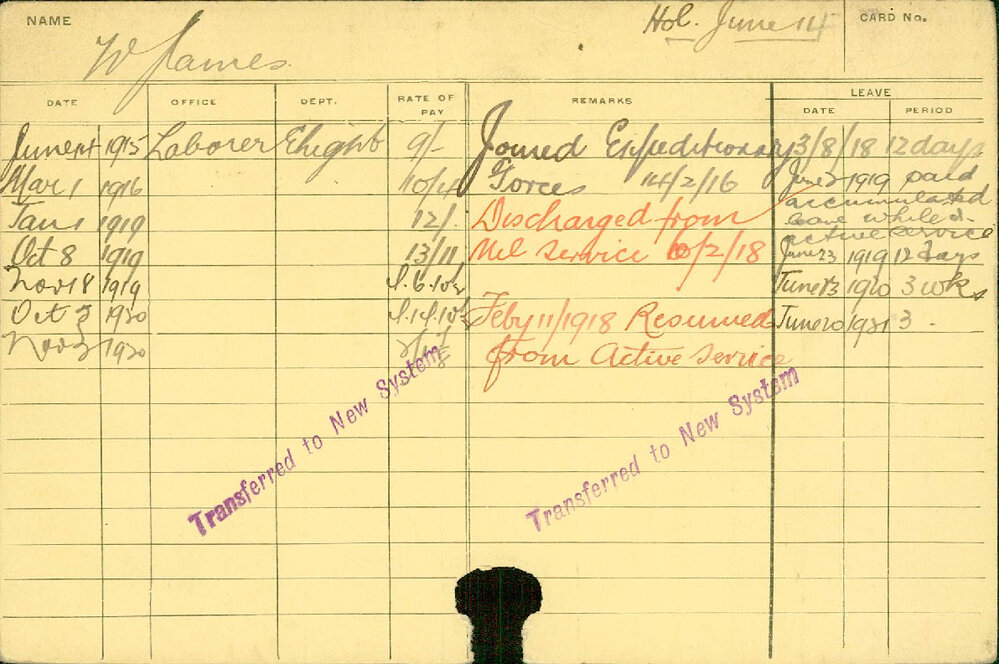 NAME W James Hol. June 14 CARD No.
DATE OFFICE DEPT. RATE OF PAY REMARKS LEAVE
DATE PERIOD
June 14 1915 Laborer 9/- Joined Expeditionary 3/8/18 12 days
Mar 1 1916 10/4 Forces 14/2/16 June 2 1919 paid
accumulated
Jan 1 1919 12/- Discharged from leave while on
active service
Oct 8 1919 13/11 Mil Service 6/2/18 June 23 1919 12 days
Nov 18 1919 June 23 1920 3 wks
Oct 3 1920 Feby 11/1918 Resumed June 20 1921 3
Nov 1920 from Active Service
Transferred to New System
Transferred to New System